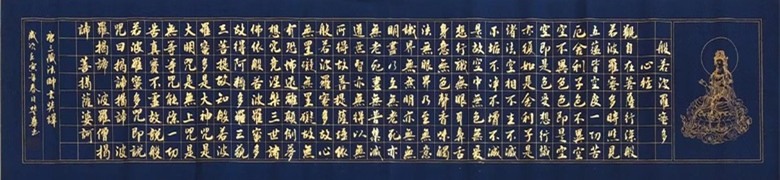 般若波羅蜜多
心經
觀自在菩薩行深般
若波羅蜜多時照見
五蘊皆空度一切苦
厄舍利子色不異空
空不異色色即是空
空即是色受想行識
亦復如是舍利子是
諸法空相不生不滅
不垢不淨不增不減
是故空中無色無受
想行識無眼耳鼻舌
身意無色聲香味觸
法無眼界乃至無意
識界無無明亦無無
明盡乃至無老死亦
無老死盡無苦集滅
道無智亦無得以無
所得故菩提薩埵依
般若波羅蜜多故心
無罣礙無罣礙故無
有恐怖遠離顛倒夢
想究竟涅槃三世諸
佛依般若波羅蜜多
故得阿耨多羅三藐
三菩提故知般若波
羅蜜多是大神咒是
大明咒是無上咒是
無等等咒能除一切
苦真實不虛故說般
若波羅蜜多咒即說
咒曰揭諦揭諦 波
羅揭諦 波羅僧揭
諦 菩提薩婆訶
唐三藏法師玄奘譯
歲次壬寅年春月